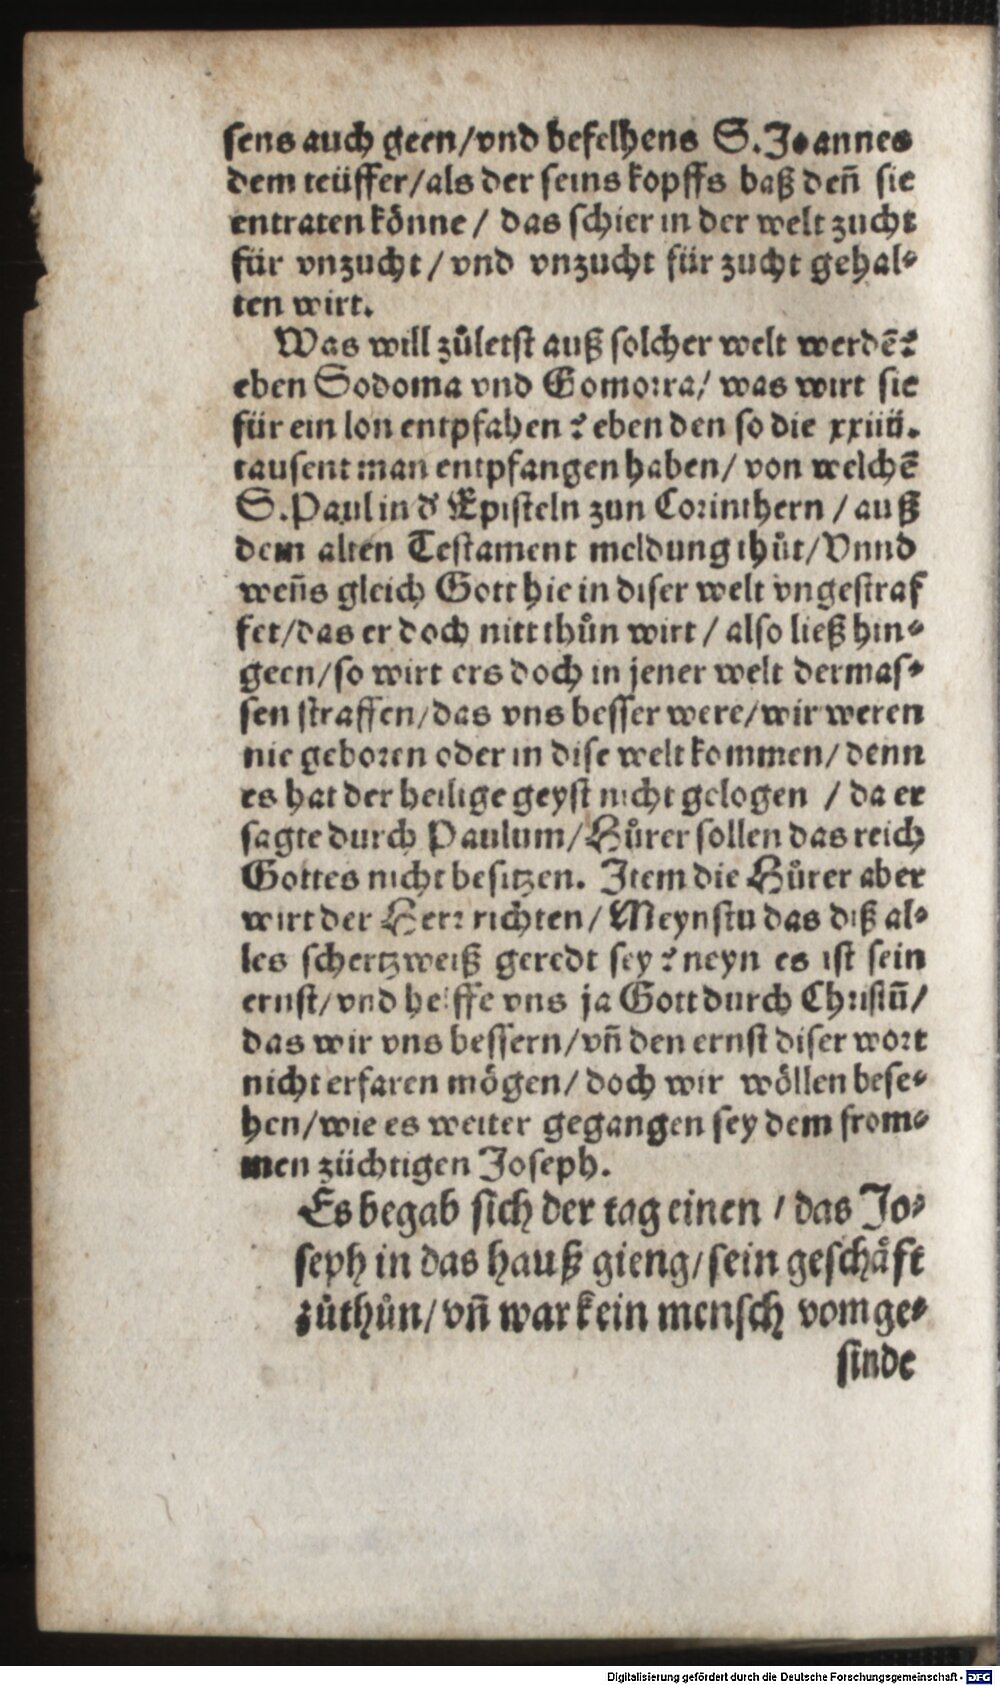 sens auch geen/vnd befelhens S. Joannes
dem teüffer/als der seins kopffs baß deñ sie
entraten könne/ das schier in der welt zucht
für vnzucht/vnd vnzucht für zucht gehal⸗
ten wirt.
Was will zůletst auß solcher welt werdē?
eben Sodoma vnd Gomorra/ was wirt sie
für ein lon entpfahen? eben den so die xxiiij.
tausent man entpfangen haben/ von welchē
S. Paul in d' Episteln zun Corinthern / auß
dem alten Testament meldung thůt/Vnnd
weñs gleich Gott hie in diser welt vngestraf
fet/das er doch nitt thůn wirt / also ließ hin⸗
geen/so wirt ers doch in jener welt dermas⸗
sen straffen/das vns besser were/wir weren
nie geboren oder in dise welt kommen/ denn
es hat der heilige geyst nicht gelogen / da er
sagte durch Paulum/Hůrer sollen das reich
Gottes nicht besitzen. Item die Hůrer aber
wirt der Herr richten/ Meynstu das diß al⸗
les schertzweiß geredt sey? neyn es ist sein
ernst/vnd helffe vns ja Gott durch Christū/
das wir vns bessern/vñ den ernst diser wort
nicht erfaren mögen/ doch wir wöllen bese⸗
hen/wie es weiter gegangen sey dem from⸗
men züchtigen Joseph.
Es begab sich der tag einen / das Jo⸗
seph in das hauß gieng/sein geschäft
zůthůn/ vñ war kein mensch vom ge⸗
sinde
Digitalisierung gefördert durch die Deutsche Forschungsgemeinschaft - DFG